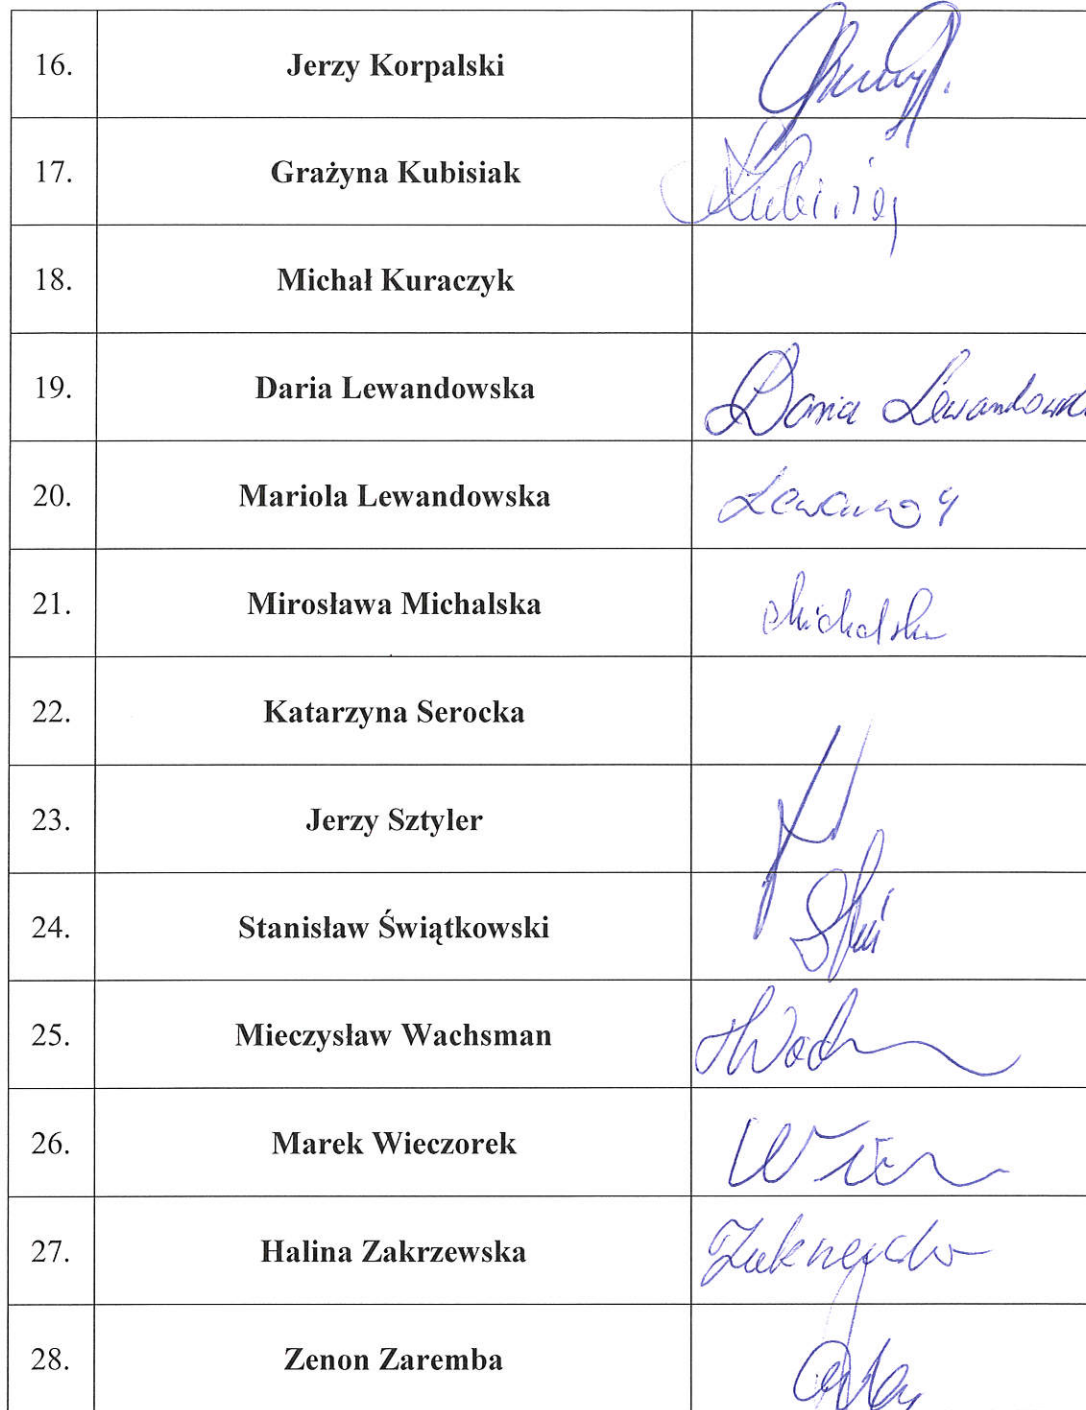 16. Jerzy Korpalski
17. Grażyna Kubisiak
18. Michał Kuraczyk
19. Daria Lewandowska Daria Lewandowska
20. Mariola Lewandowska
21. Mirosława Michalska Michalska
22. Katarzyna Serocka
23. Jerzy Sztyler
24. Stanisław Świątkowski
25. Mieczysław Wachsman
26. Marek Wieczorek
27. Halina Zakrzewska
28. Zenon Zaremba